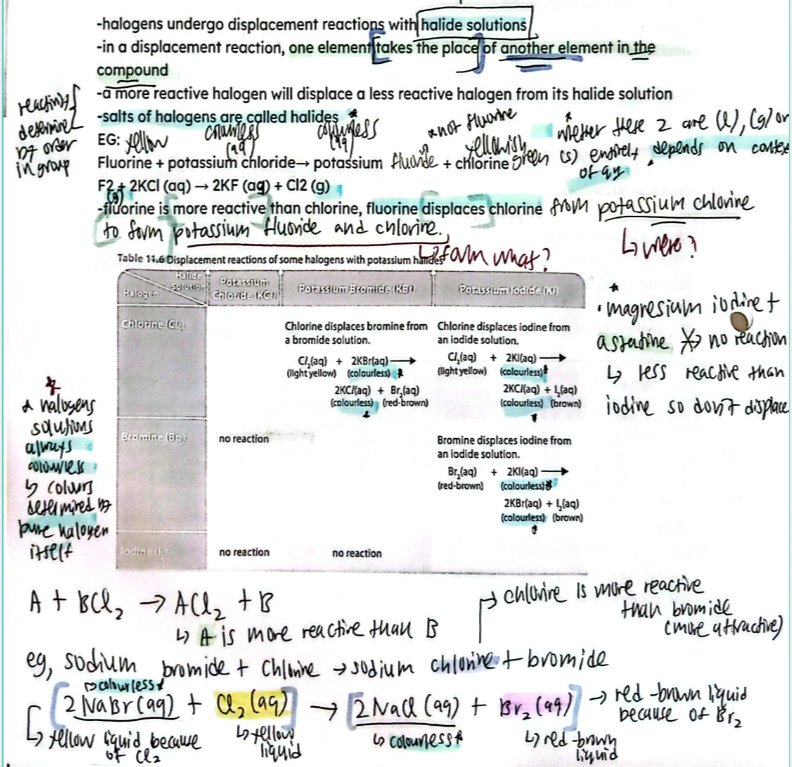 -halogens undergo displacement reactions with halide solutions
-in a displacement reaction, one element takes the place of another element in the
compound
-a more reactive halogen will displace a less reactive halogen from its halide solution
-salts of halogens are called halides *
reactivity
determined
by order
in group
EG: yellow colourless (aq) colourless (aq) * not fluorine yellowish
Fluorine + potassium chloride → potassium fluoride + chlorine green
* whether these 2 are (l), (g) or
(s) entirely depends on context
of qn.
F2 + 2KCl (aq) → 2KF (aq) + Cl2 (g)
(g)
-fluorine is more reactive than chlorine, fluorine displaces chlorine from potassium chlorine
to form potassium fluoride and chlorine.
↳ form what?
↳ where?
Table 11.6 Displacement reactions of some halogens with potassium halides
Halide solution Potassium Chloride (KCl) Potassium Bromide (KBr) Potassium Iodide (KI)
Halogen
Chlorine (Cl₂)
Chlorine displaces bromine from
a bromide solution.
Cl₂(aq) + 2KBr(aq) ⟶
(light yellow) (colourless) *
2KCl(aq) + Br₂(aq)
(colourless) (red-brown)
Chlorine displaces iodine from
an iodide solution.
Cl₂(aq) + 2KI(aq) ⟶
(light yellow) (colourless) *
2KCl(aq) + I₂(aq)
(colourless) (brown)
Bromine (Br₂) no reaction
Bromine displaces iodine from
an iodide solution.
Br₂(aq) + 2KI(aq) ⟶
(red-brown) (colourless) *
2KBr(aq) + I₂(aq)
(colourless) (brown)
Iodine (I₂) no reaction no reaction
*
• magnesium iodine +
astatine → no reaction
↳ less reactive than
iodine so don't displace
*
halogens
solutions
always
colourless
↳ colours
determined by
pure halogen
itself
A + BCl₂ → ACl₂ + B
↳ A is more reactive than B
→ chlorine is more reactive
than bromide
(more attractive)
eg, sodium bromide + chlorine → sodium chlorine + bromide
↳ colourless *
[2NaBr (aq) + Cl₂ (aq)] → [2NaCl (aq) + Br₂ (aq)] → red-brown liquid
because of Br₂
↳ yellow liquid because
of Cl₂
↳ yellow
liquid
↳ colourless *
↳ red-brown
liquid